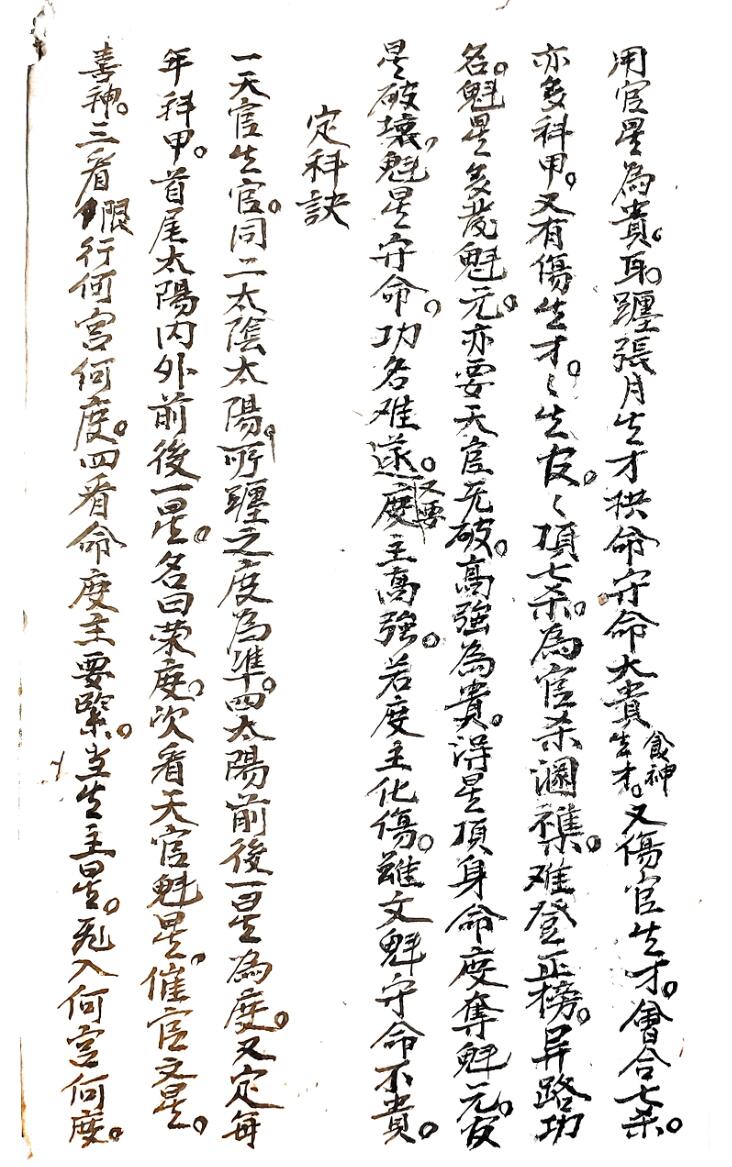 用官星為貴。耳。躔張月生才拱命守命大貴食神生才。又傷官生才。會合七杀。
亦多科甲。又有傷生才。〻生官。〻頂七杀。為官杀溷襍。难登正榜。异路功
名。魁星多發魁元。亦要天官无破。高強為貴。得星頂身命度奪魁元。官
星破壞。魁星守命。功名难遂。又要度主高強。若度主化傷。雖文魁守命不貴。
定科訣
一天官生官。同二太陰太陽。所躔之度為準。四太陽前後一星為度。又定每
年科甲。首尾太陽内外前後一星。名曰荣度。次看天官魁星。催官文星。
喜神。三看限行何宮何度。四看命度主要緊。生主星。飛入何宮何度。